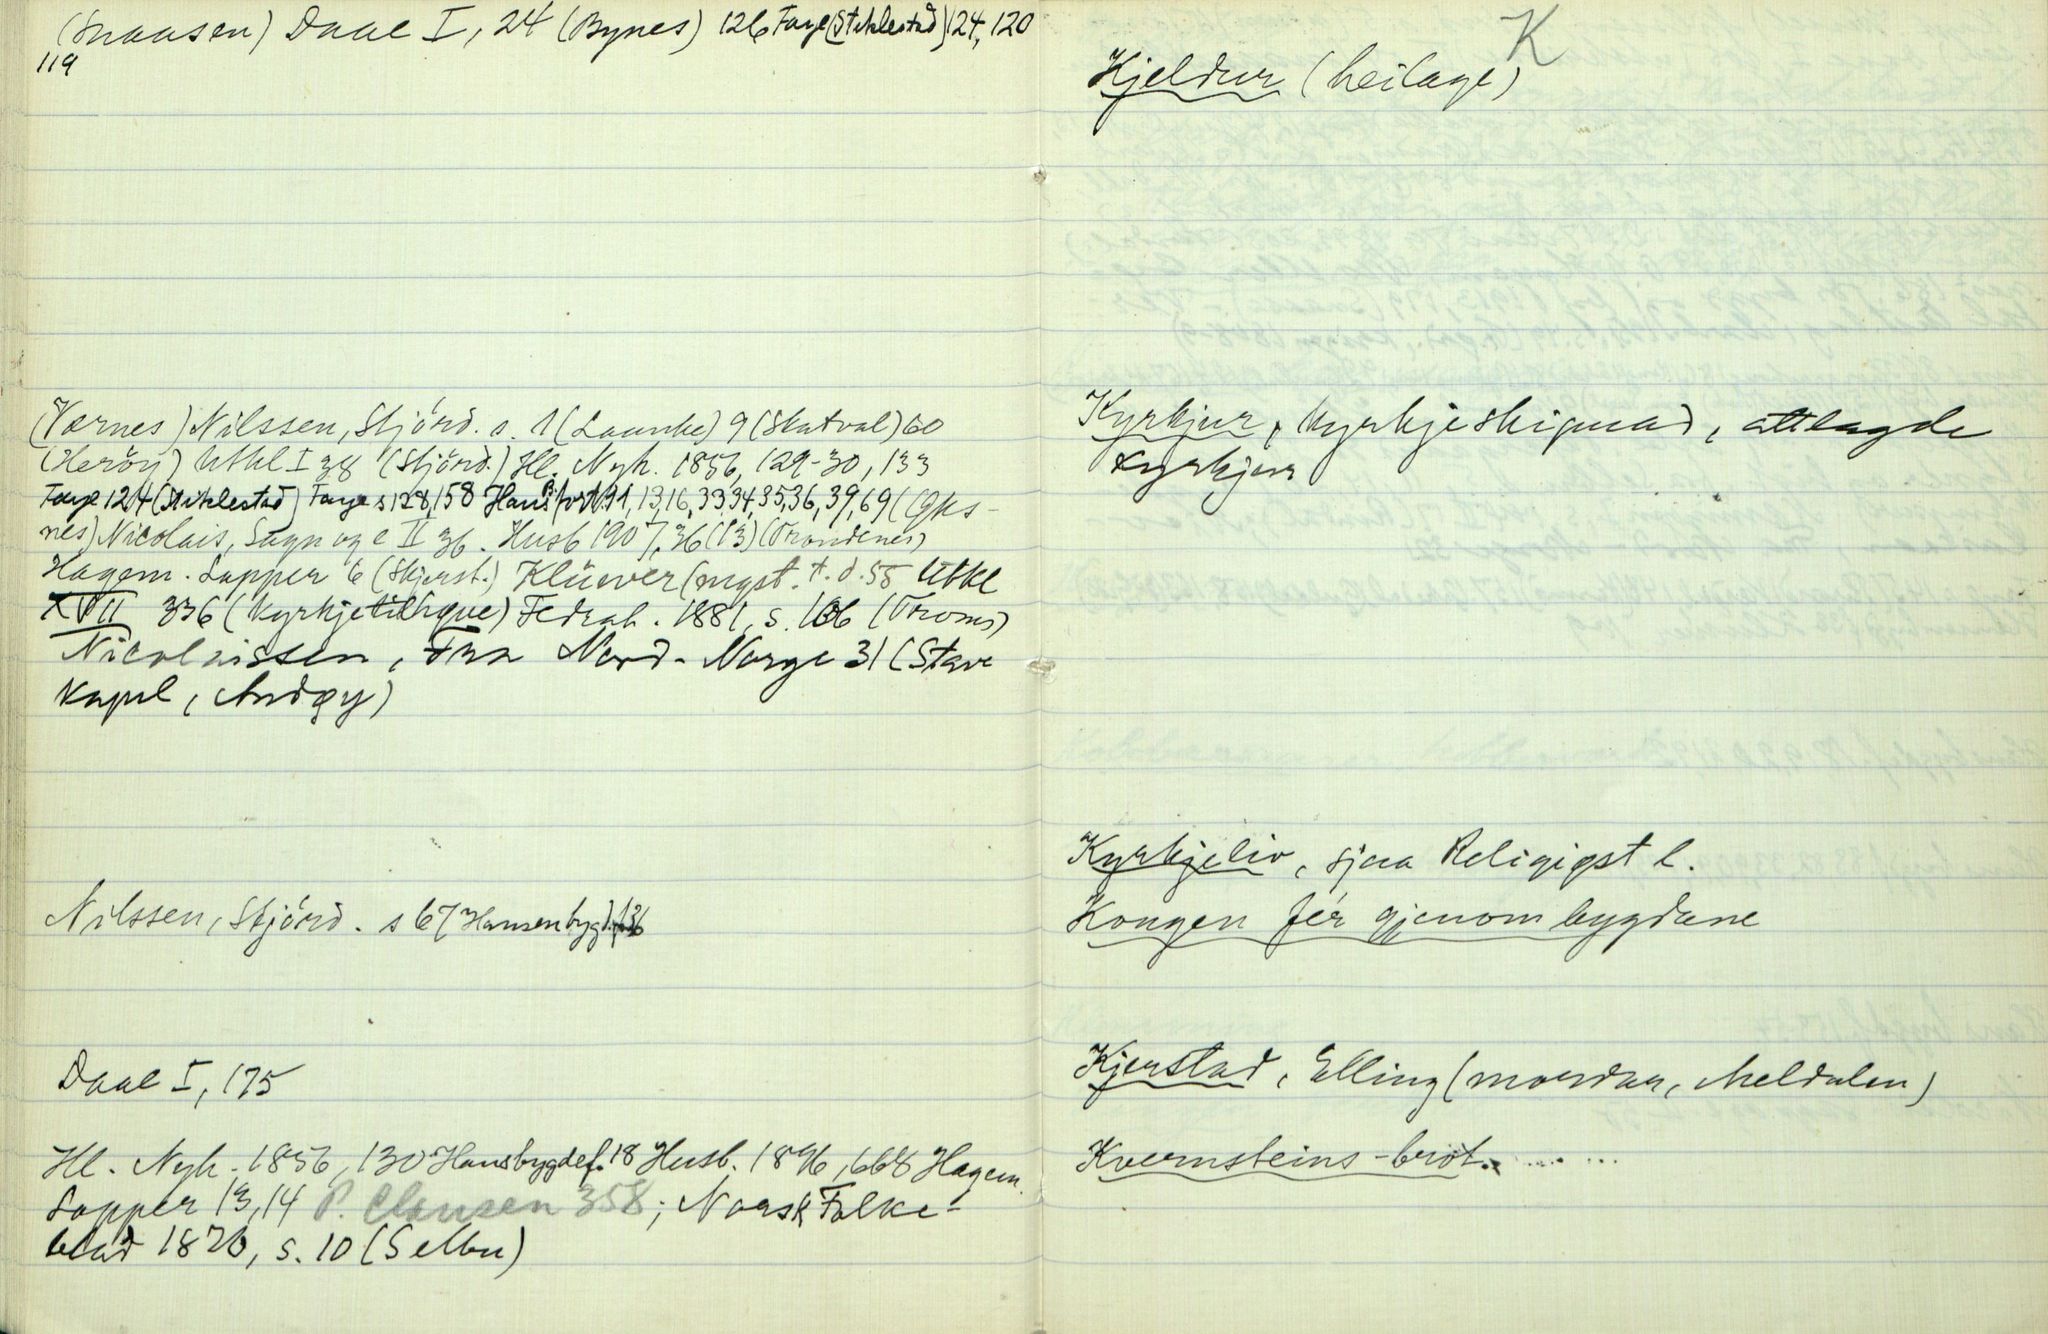 (Snaasen) Daae I, 24 (Bynes) 126 Faye (Stiklestad) 124, 120
119
(Værnes) Nilssen, Stjörd. s. 1 (Laanke) 9 (Skatval) 60
(Heröy) Utkl I 38 (Stjörd.) Hl. Nyh. 1856, 129-30, 133
Faye 124 (Stiklestad) Faye s 128, 158 Hans 11, 13, 16, 33, 34, 35, 36, 39, 69 (Øks-
nes) Nicolais, Sagn og e II 36. Husb 1907, 36 (13) (Trondenes)
Hagem. Lapper 6 (Skjerst.) Klüwer (mgst. t. d. 55 Utkl
XVII 336 (kyrkjetilhøve) Fedrah. 1881, s. 166 (Troms)
Nicolaissen, Fra Nord-Norge 31 (Stave
kapel, Andøy)
Nilssen, Stjörd. s 67 Hansen bygd. 136
Daae I, 175
Hl. Nyh. 1856, 130 Hans bygdef. 18 Husb. 1896, 668 Hagem.
Lapper 13, 14 P. Clausen 358; Norsk Folke-
blad 1870, s. 10 (Selbu)
K
Kjeldur (heilage)
Kyrkjur, kyrkjeskipnad, attlagde
kyrkjur
Kyrkjeliv, sjaa Religiøst l.
Kongen fér gjenom bygdane
Kjerstad, Elling (mordar, Meldalen)
Kvernsteins-brot.